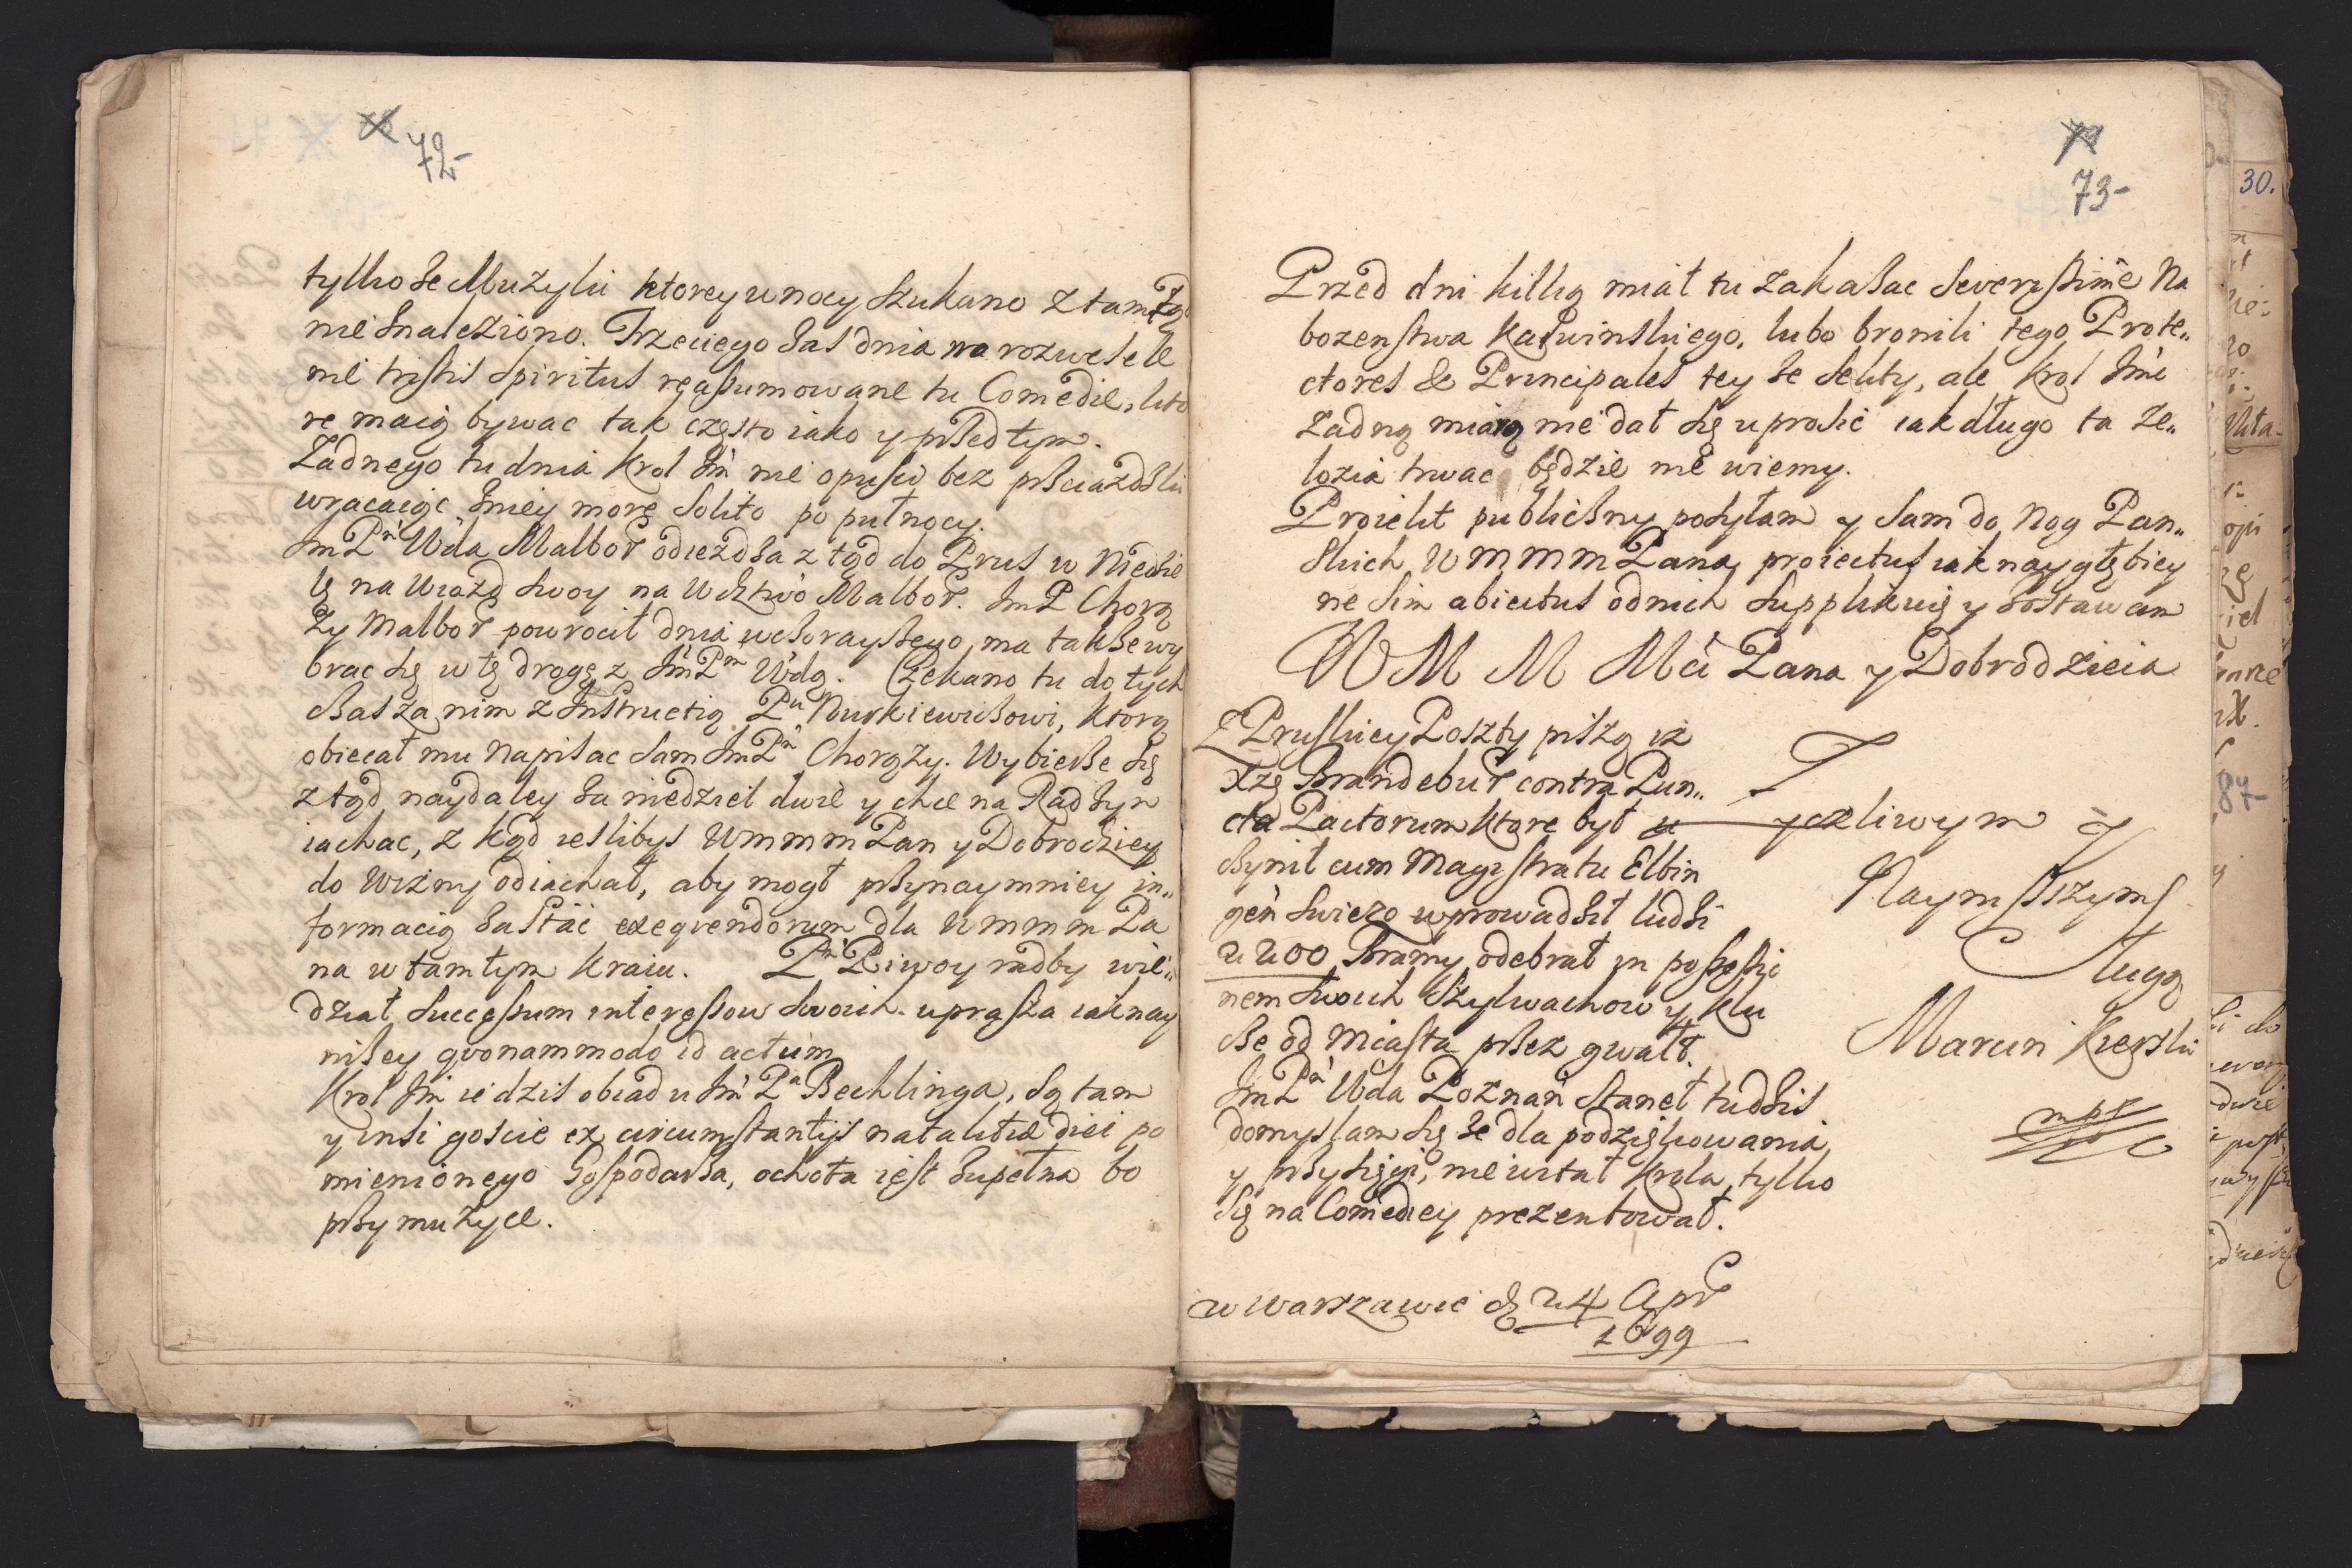 72-
tylko że Muzyki ktorey w nocy szukano z tamtąd
nie znaleziono. Trzeciego zas dnia na rozwesele
nie tristis Spiritus reassumowane tu Comedie, kto
re maią bywac tak często iako y przedtym.
Zadnego tu dnia Krol Jm nie opusci bez przeiażdzki
wracaiąc zniey more solito po pułnocy.
Jm Pn Wda Malbor odieżdza z tąd do Prus w Niedzie
lę na wiazd swoy na Wdztwo Malbor. Jm P Chorą
zy Malbor powrocił dnia wczorayszego, ma takze wy
brac się w tę drogę z Jm Pm Wdą. Czekano tu do tych
czas za nim z Instructią Pu Nurkiewiczowi, ktorą
obiecał mu napisac sam Jm Pn Chorąży. Wybierze się
z tąd naydaley za niedziel dwie y chce na Radzyn
iachac, z kąd ieslibys WmmmPan y Dobrodziey
do Wizny odiachał, aby mogł przynaymniey in„
formacią zastac exeqvendorum dla Wmmm Pa
na w tamtym kraiu. Pn Piwoy radby wie„
dział successum interessow swoich. uprasza iaknay
niżey qvonammodo id actum.
Krol Jm ie dzis obiad u Jm Pa Bechlinga, są tam
y insi goscie ex circumstantijs natalitiæ diei po
mienionego Gospodarza, ochota iest zupełna bo
przy muzyce.
73-
Przed dni kilką miał tu zakazac severissime Na
bozenstwa Kalwinskiego, lubo bronili tego Prote„
ctores & Principales tey że sekty, ale Krol Jmć
zadną miarą nie dał się uprosić iak długo ta ze„
lozia trwac będzie nie wiemy.
Proiekt publiczny posyłam y sam do Nog Pan„
skich WmmmPana proiectus iak naygłębiey
ne sim abiectus odnich supplikuię y zostawam
WM M Mći Pana y Dobrodzieia
Z Pruskiey Poszty piszą iż
Xżę Brandebur contra Pun„
cta Pactorum ktore był u
czynił cum Magistratu Elbin
gen swiezo wprowadził ludzi
2200 Bramy odebrał in possessio
nem swoich Szylwachow y klu
cze od Miasta przez gwałt.
Jm Pn Wda Poznan stanęł tu dzis
domyslam się że dla podziękowania
y przysięgi, nie witał Krola, tylko
się na Comediey prezentował.
yczliwym y
Naynisszym
Sługą
Marcin Kierski
mpr
w Warszawie d 24 Apr
1699
30.
87-